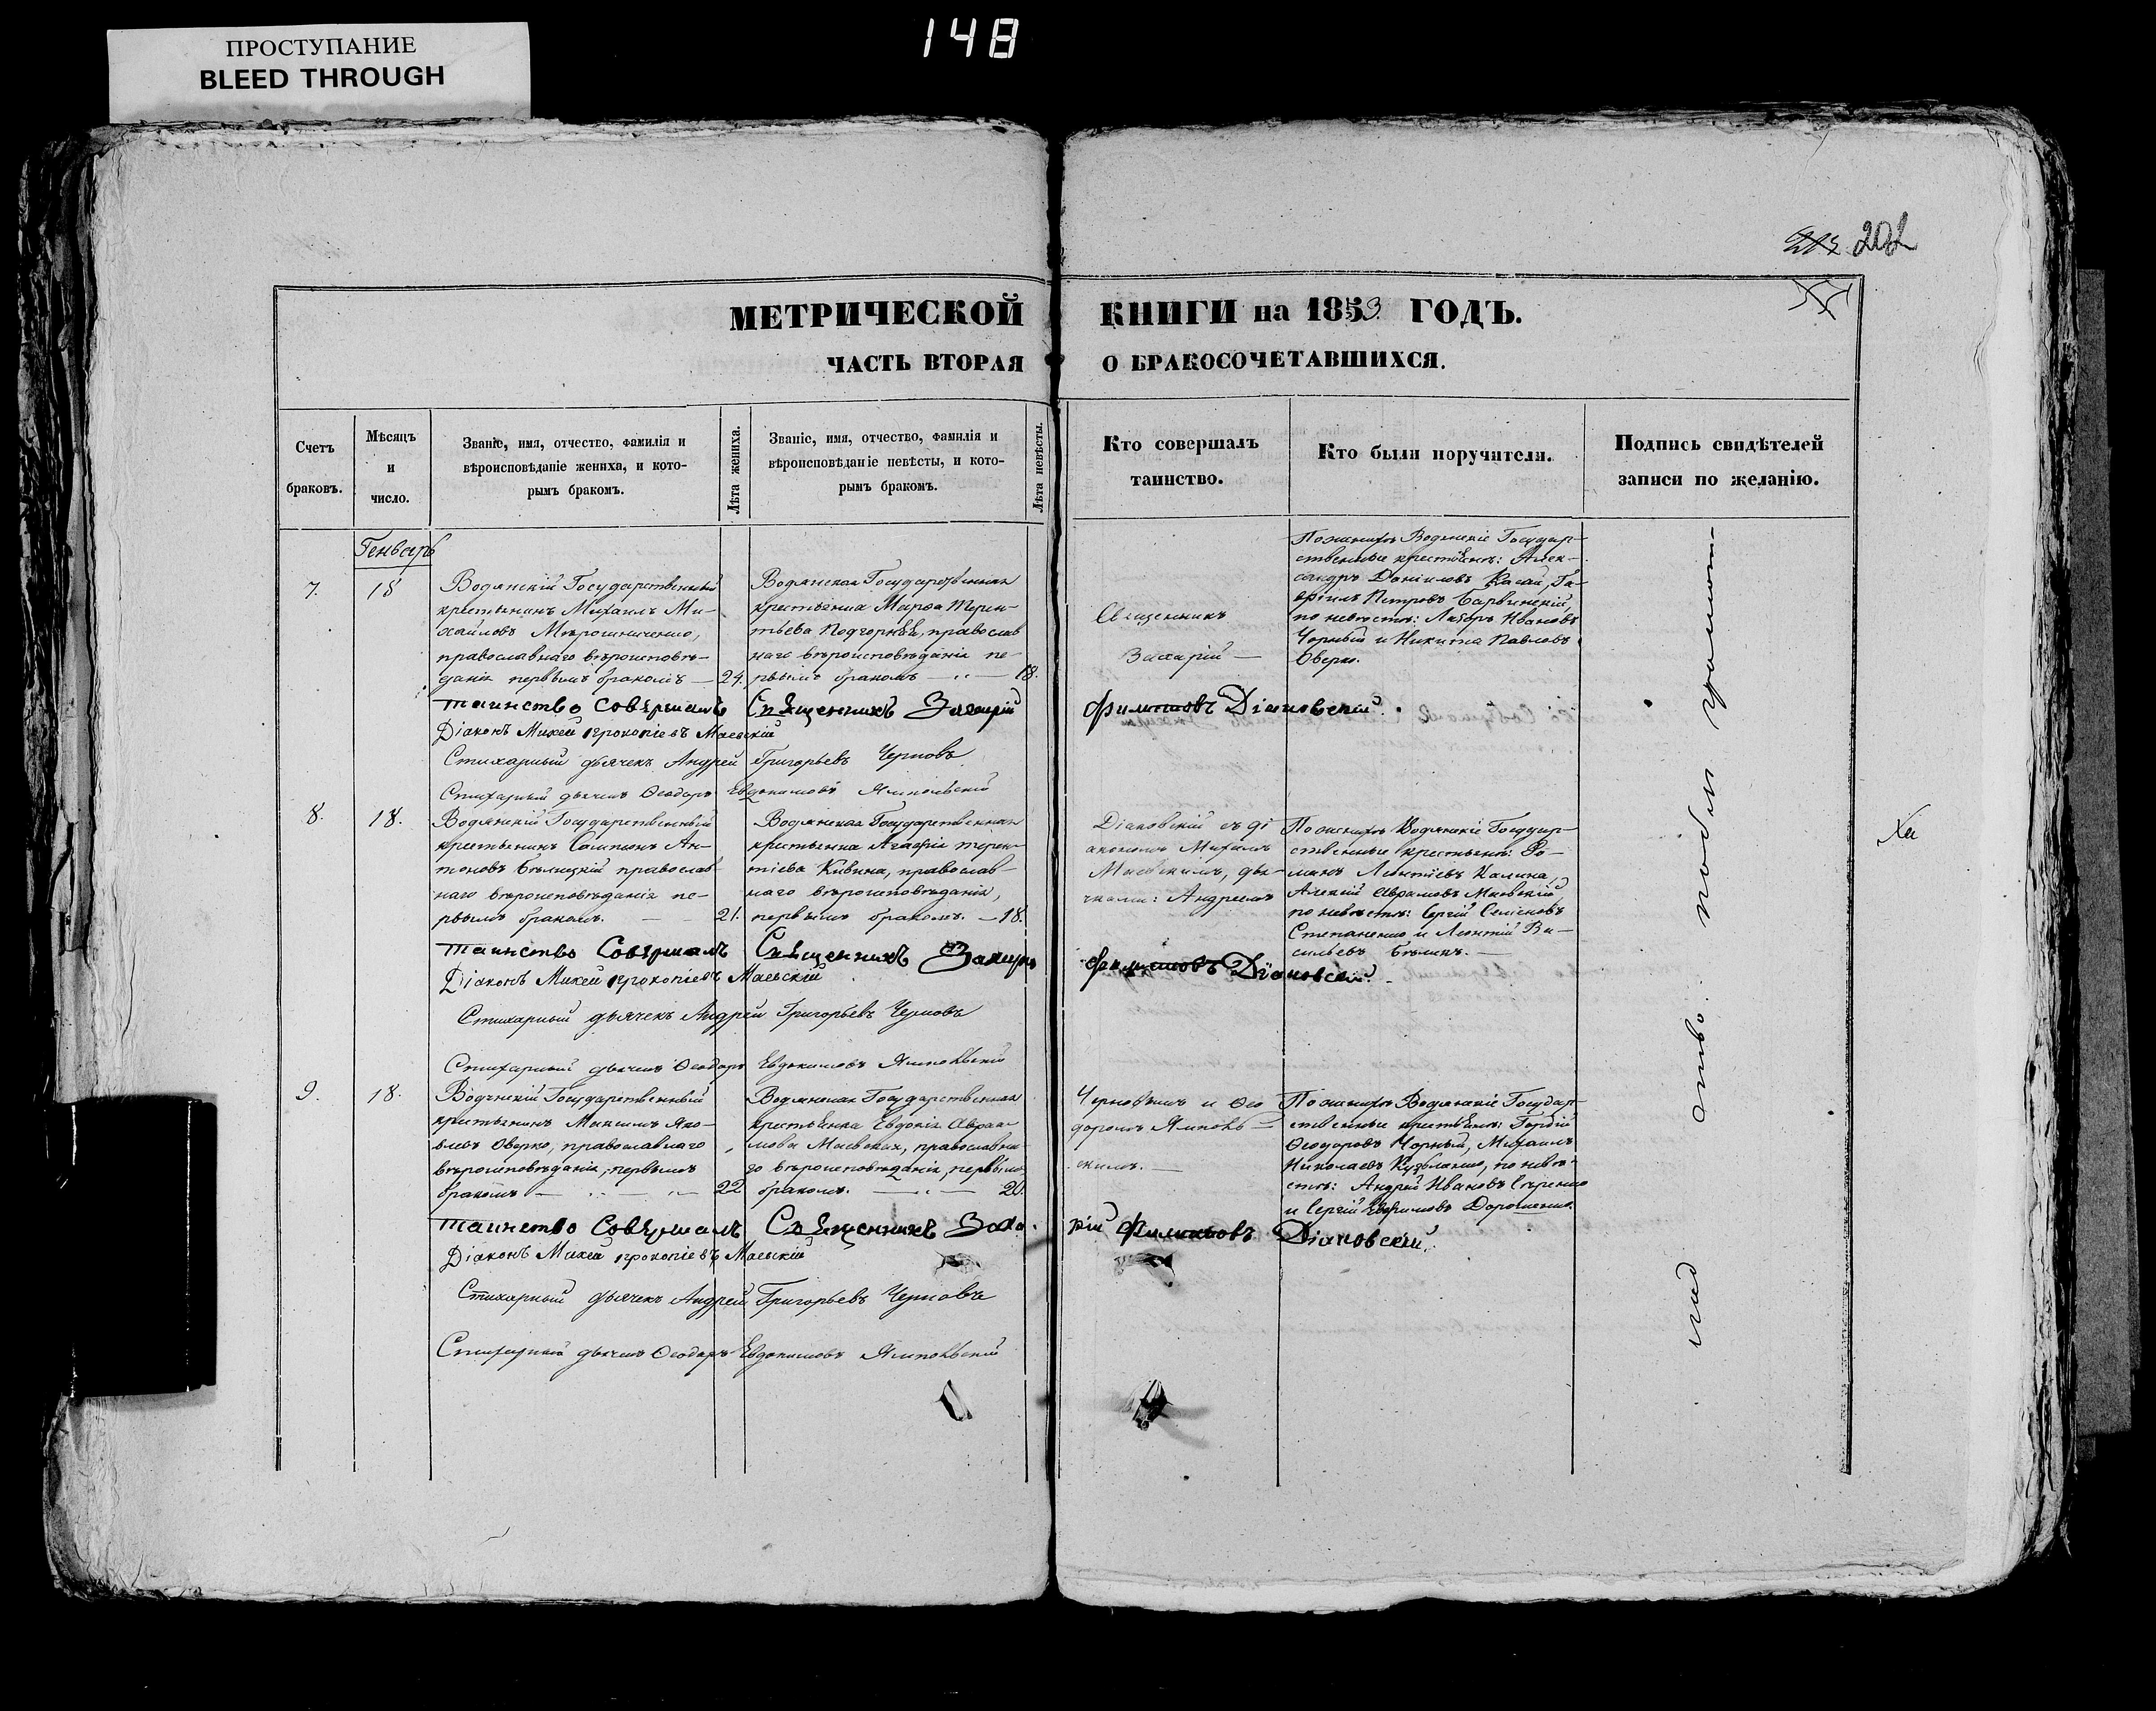 148
ПРОСТУПАНИЕ
BLEED THROUGH
202
МЕТРИЧЕСКОЙ КНИГИ на 1853 ГОДЪ.
ЧАСТЬ ВТОРАЯ О БРАКОСОЧЕТАВШИХСЯ.
Счетъ
браковъ.
Мѣсяцъ
и
число.
Званіе, имя, отчество, фамилія и
вѣроисповѣданіе жениха, и кото-
рымъ бракомъ.
Лѣта жениха.
Званіе, имя, отчество, фамилія и
вѣроисповѣданіе невѣсты, и кото-
рымъ бракомъ.
Лѣта невѣсты.
Кто совершалъ
таинство.
Кто были поручители.
Подпись свидѣтелей
записи по желанію.
Генварь
7.
18
Водянскій Государственный
крестьянинъ Михаилъ Ми-
хайловъ
православнаго вѣроисповѣ-
данія первымъ бракомъ — 24.
Водянская Государственная
крестьянка Марѳа Терен-
тьева Подгорняя, православ
наго вѣроисповѣданія пе-
рвымъ бракомъ — 18.
Священникъ
Захарій —
По женихѣ Водянскіе Государ-
ственные крестьяне: Алек-
сандръ Даниловъ Касай, Га-
вріилъ Петровъ Барвинскій,
по невѣстѣ: Лазарь Ивановъ
Чорный и Никита Павловъ
Оверко.
Таинство совершалъ Священникъ Захарій Филиповъ Діяковскій.
Діаконъ Михей Прокопіевъ Маевскій
Стихарный дьячекъ Андрей Григорьевъ Черновъ
Стихарный дьячекъ Ѳеодоръ Евдокимовъ Ямпольскій
8.
18.
Водянскій Государственный
крестьянинъ Сампсонъ Ан-
тоновъ Бѣлицкій православ-
наго вѣроисповѣданія пе-
рвымъ бракомъ. — 21.
Водянская Государственная
крестьянка Агафія Терен-
тіева Кивина, православ-
наго вѣроисповѣданія,
первымъ бракомъ. — 18.
Діяковскій съ ді
акономъ Михеемъ
Маевскимъ, дья-
чками: Андреемъ
По женихѣ Водянскіе Государ-
ственные крестьяне: Ро-
манъ Леонтіевъ Калина,
Алексій Аврамовъ Маевскій
по невѣстѣ: Сергій Семеновъ
Степаненко и Леонтій Ва-
сильевъ Бѣликъ. —
Таинство Совершалъ Священникъ Захарій Филиповъ Діяковскій.
Діаконъ Михей Прокопіевъ Маевскій
Стихарный дьячекъ Андрей Григорьевъ Черновъ
Стихарный дьячекъ Ѳеодоръ Евдокимовъ Ямпольскій
9.
18.
Водянскій Государственный
крестьянинъ Максимъ Яко-
влевъ Оверко, православнаго
вѣроисповѣданія, первымъ
бракомъ — 22
Водянская Государственная
крестьянка Евдокія Авраа-
мова Маевская, православна-
го вѣроисповѣданія, первымъ
бракомъ. — 20.
Черновымъ и Ѳео
доромъ Ямполь-
скимъ. —
По женихѣ Водянскіе Государ-
ственные крестьяне: Гордій
Ѳеодоровъ Чорный, Михаилъ
Николаевъ Кузьменко, по невѣ-
стѣ: Андрей Ивановъ
и Сергій Ефимовъ Дорошенко.
Таинство Совершалъ Священникъ Захарій Филиповъ Діяковскій.
Діаконъ Михей Прокопіевъ Маевскій
Стихарный дьячекъ Андрей Григорьевъ Черновъ
Стихарный дьячекъ Ѳеодоръ Евдокимовъ Ямпольскій